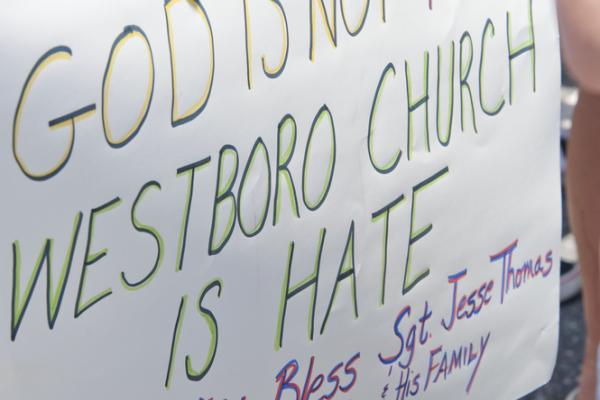 GOD IS NOT
WESTBORO CHURCH
IS HATE
Bless Sgt. Jesse Thomas
& His FAMILY